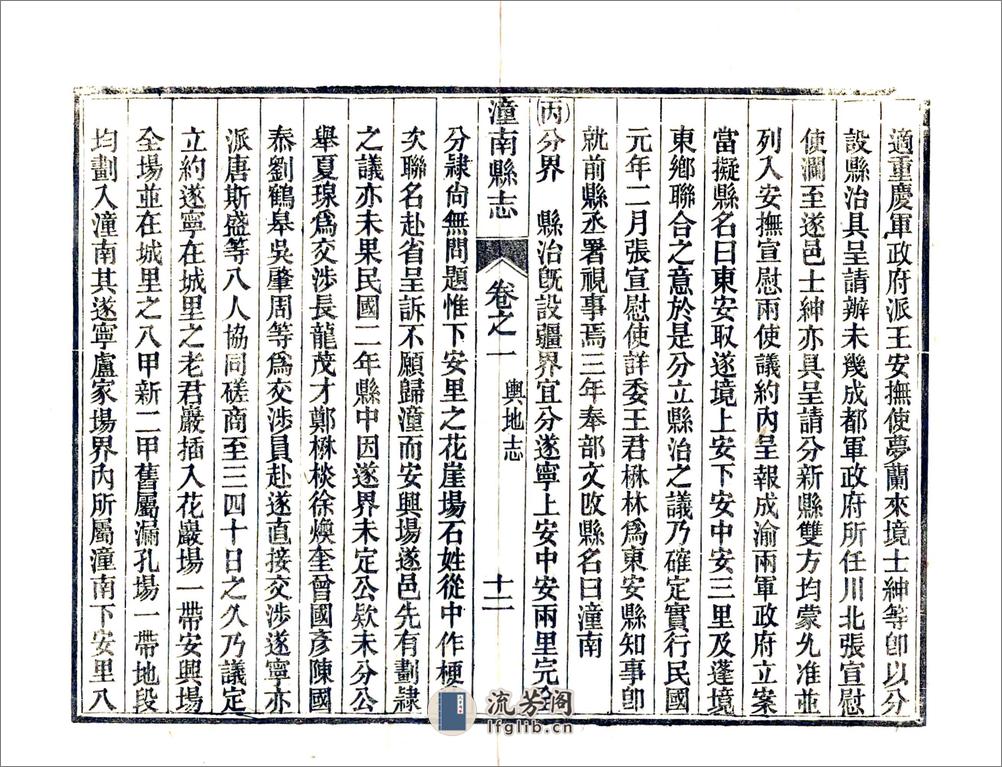 適重慶軍政府派王安撫使夢蘭來境士紳等卽以分
設縣治具呈請辦未幾成都軍政府所任川北張宣慰
使瀾至遂邑士紳亦具呈請分新縣雙方均蒙允准並
列入安撫宣慰兩使議約內呈報成渝兩軍政府立案
當擬縣名曰東安取遂境上安下安中安三里及蓬境
東鄉聯合之意於是分立縣治之議乃確定實行民國
元年二月張宣慰使詳委王君楙林爲東安縣知事卽
就前縣丞署視事焉三年奉部文改縣名曰潼南
(丙)分界 縣治旣設疆界宜分遂寧上安中安兩里完全
潼南縣志 卷之一 輿地志 十二
分隸尙無問題惟下安里之花崖場石姓從中作梗
次聯名赴省呈訴不願歸潼而安興場遂邑先有劃隸
之議亦未果民國二年縣中因遂界未定公欵未分公
舉夏瑔爲交涉長龍茂才鄭楙棪徐煥奎曾國彥陳國
泰劉鶴皋吳肇周等爲交涉員赴遂直接交涉遂寧亦
派唐斯盛等八人協同磋商至三四十日之久乃議定
立約遂寧在城里之老君巖插入花巖場一帶安興場
全場並在城里之八甲新二甲舊屬漏孔場一帶地段
均劃入潼南其遂寧盧家場界內所屬潼南下安里八
流芳閣
lfglib.cn